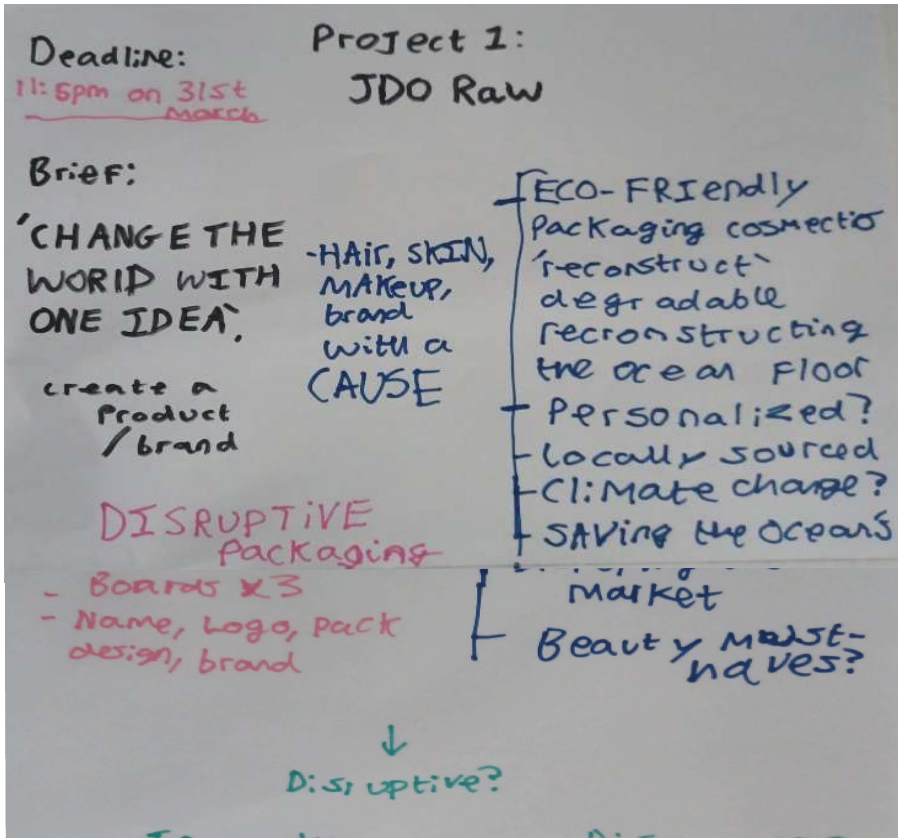 Deadline:
11:5pm on 31st
March
Project 1:
JDO Raw
Brief:
'CHANGE THE
WORLD WITH
ONE IDEA'.
create a
Product
/brand
-HAir, SKIN,
MAKEUP,
brand
with a
CAUSE
ECO-FRIendly
Packaging cosmectic
'reconstruct'
degradable
recronstructing
the ocean Floor
- Personalized?
- Locally sourced
- Climate change?
- SAVing the Ocean's
DISRUPTiVE
Packaging
- Boards x3
- Name, Logo, pack
design, brand
market
- Beauty must-
haves?
↓
Disruptive?